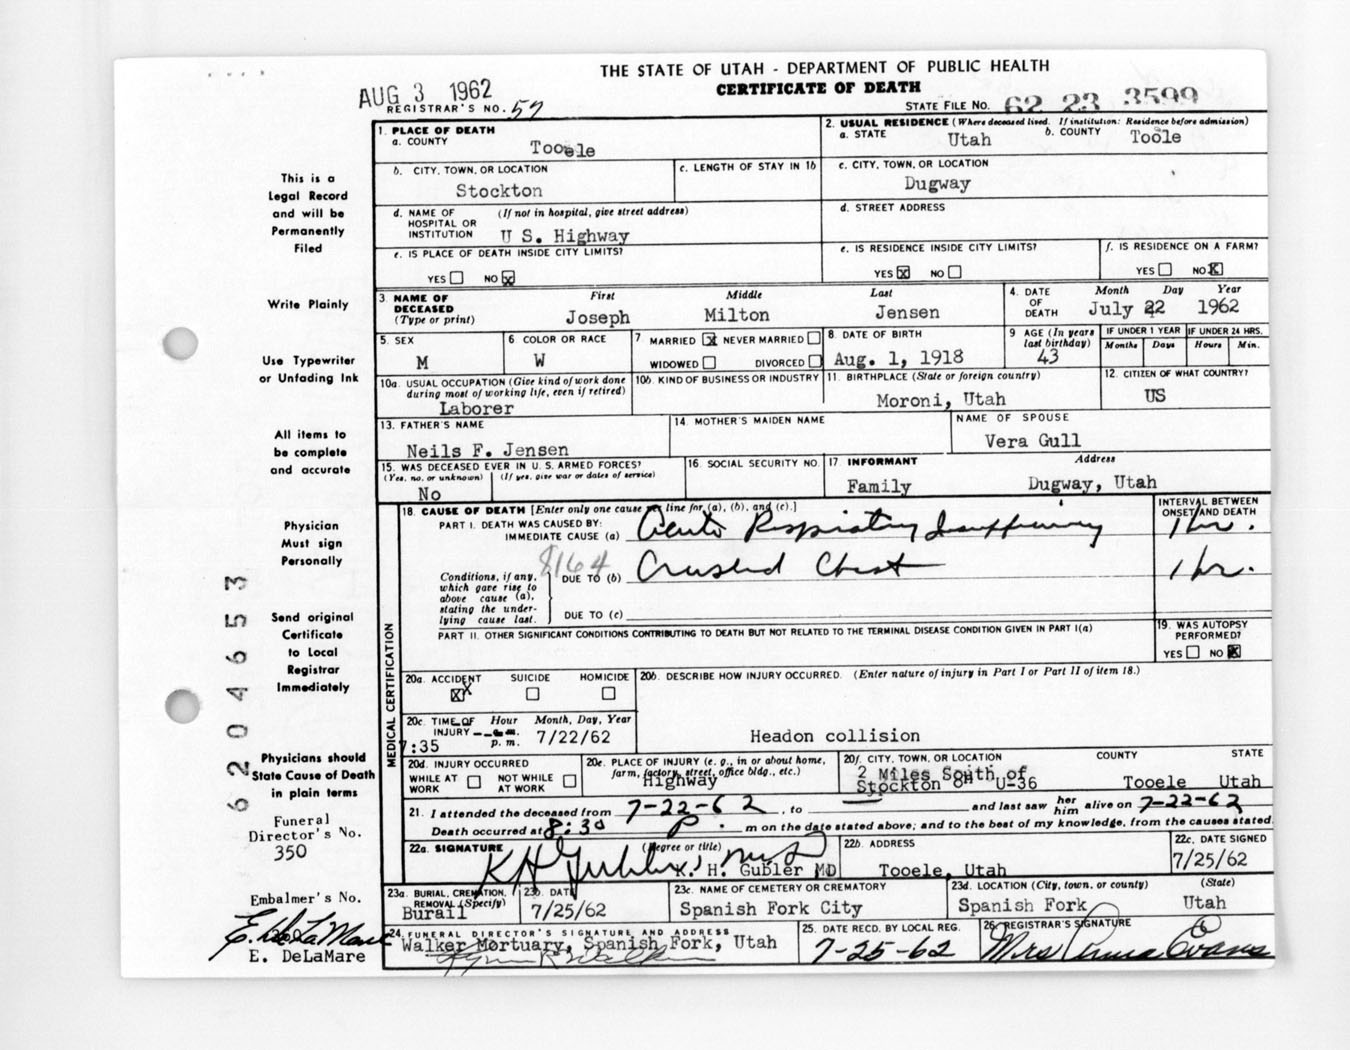 THE STATE OF UTAH - DEPARTMENT OF PUBLIC HEALTH
AUG 3 1962
CERTIFICATE OF DEATH
REGISTRAR'S NO. 57
STATE FILE NO. 62 23 3599
1. PLACE OF DEATH
a. COUNTY Tooele
2. USUAL RESIDENCE (Where deceased lived. If institution: Residence before admission)
a. STATE Utah b. COUNTY Toole
b. CITY, TOWN, OR LOCATION Stockton
c. LENGTH OF STAY IN 1b
c. CITY, TOWN, OR LOCATION Dugway
d. NAME OF HOSPITAL OR INSTITUTION (If not in hospital, give street address) U S. Highway
d. STREET ADDRESS
e. IS PLACE OF DEATH INSIDE CITY LIMITS?
YES NO X
e. IS RESIDENCE INSIDE CITY LIMITS?
YES X NO
f. IS RESIDENCE ON A FARM?
YES NO X
3. NAME OF DECEASED (Type or print)
First Middle Last
Joseph Milton Jensen
4. DATE OF DEATH
Month Day Year
July 22 1962
5. SEX M
6 COLOR OR RACE W
7 MARRIED X NEVER MARRIED
WIDOWED DIVORCED
8. DATE OF BIRTH Aug. 1, 1918
9 AGE (In years last birthday) 43
IF UNDER 1 YEAR Months Days
IF UNDER 24 HRS. Hours Min.
10a. USUAL OCCUPATION (Give kind of work done during most of working life, even if retired) Laborer
10b. KIND OF BUSINESS OR INDUSTRY
11. BIRTHPLACE (State or foreign country) Moroni, Utah
12. CITIZEN OF WHAT COUNTRY? US
13. FATHER'S NAME Neils F. Jensen
14. MOTHER'S MAIDEN NAME
NAME OF SPOUSE Vera Gull
15. WAS DECEASED EVER IN U. S. ARMED FORCES?
(Yes, no, or unknown) (If yes, give war or dates of service)
No
16. SOCIAL SECURITY NO.
17. INFORMANT Address
Family Dugway, Utah
18. CAUSE OF DEATH [Enter only one cause per line for (a), (b), and (c).]
INTERVAL BETWEEN ONSET AND DEATH
PART I. DEATH WAS CAUSED BY:
IMMEDIATE CAUSE (a) Acute Respiratory Insufficiency 1 hr.
8164
Conditions, if any, which gave rise to above cause (a), stating the underlying cause last.
DUE TO (b) Crushed Chest 1 hr.
DUE TO (c)
PART II. OTHER SIGNIFICANT CONDITIONS CONTRIBUTING TO DEATH BUT NOT RELATED TO THE TERMINAL DISEASE CONDITION GIVEN IN PART I(a)
19. WAS AUTOPSY PERFORMED?
YES NO X
MEDICAL CERTIFICATION
20a. ACCIDENT SUICIDE HOMICIDE
X X
20b. DESCRIBE HOW INJURY OCCURRED. (Enter nature of injury in Part I or Part II of item 18.)
Headon collision
20c. TIME OF INJURY Hour Month, Day, Year
7:35 a.m. p. m. 7/22/62
20d. INJURY OCCURRED
WHILE AT WORK NOT WHILE AT WORK
20e. PLACE OF INJURY (e. g., in or about home, farm, factory, street, office bldg., etc.)
Highway
20f. CITY, TOWN, OR LOCATION COUNTY STATE
2 Miles South of
Stockton on U-36 Tooele Utah
21. I attended the deceased from 7-22-62, to and last saw her him alive on 7-22-62
Death occurred at 8:30 P. m on the date stated above; and to the best of my knowledge, from the causes stated.
22a. SIGNATURE (Degree or title)
K H Gubler, M D
K. H. Gubler MD
22b. ADDRESS Tooele, Utah
22c. DATE SIGNED 7/25/62
23a. BURIAL, CREMATION, REMOVAL (Specify) Burail
23b. DATE 7/25/62
23c. NAME OF CEMETERY OR CREMATORY Spanish Fork City
23d. LOCATION (City, town, or county) (State)
Spanish Fork Utah
24. FUNERAL DIRECTOR'S SIGNATURE AND ADDRESS
Walker Mortuary, Spanish Fork, Utah
25. DATE RECD. BY LOCAL REG. 7-25-62
26. REGISTRAR'S SIGNATURE
Mrs Anna Evans
This is a
Legal Record
and will be
Permanently
Filed
Write Plainly
Use Typewriter
or Unfading Ink
All items to
be complete
and accurate
Physician
Must sign
Personally
Send original
Certificate
to Local
Registrar
Immediately
Physicians should
State Cause of Death
in plain terms
Funeral
Director's No.
350
Embalmer's No.
E. DeLaMare
E. DeLaMare
6204653